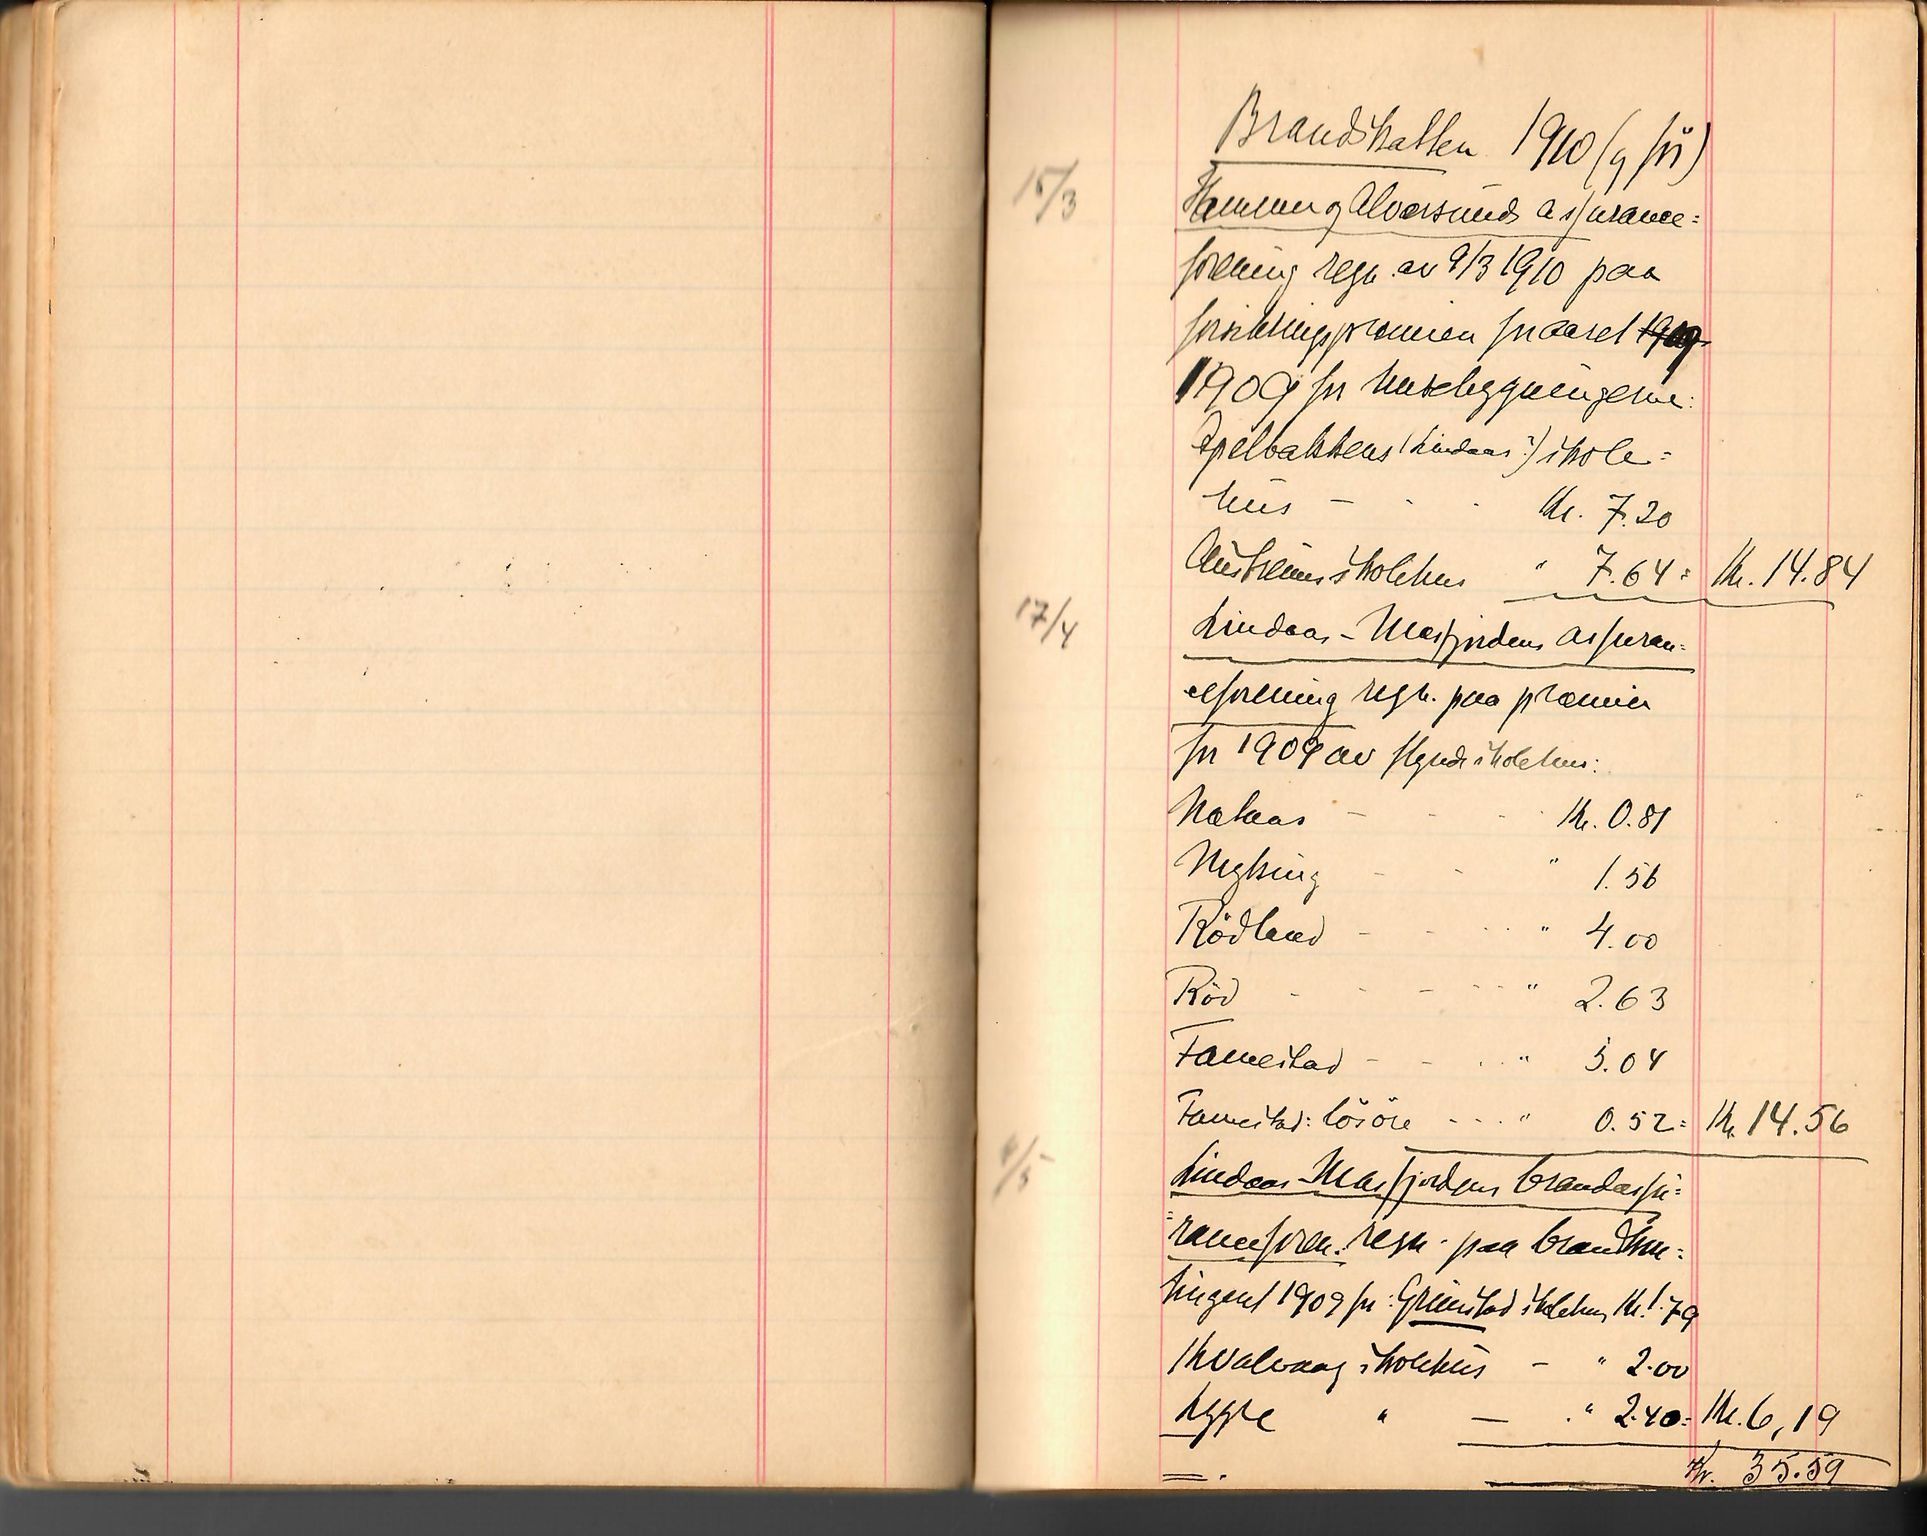 Brandskatten 1910 (og før)
15/3
Hammer og Alversunds assurance=
forening regn. av 9/3 1910 paa
forsikringspræmien for aaret 1909
1909 for husebygningerne:
Apelbakkens (Lindaas?) skole=
hus - - - Kr. 7.20
Austrheim skolehus " 7.64 = Kr. 14.84
17/4
Lindaas-Masfjordens assuran=
ceforening regn. paa præmien
for 1909 av flgnde skolehus:
Nataas - - - Kr. 0.81
Myking - - " 1.56
Rödland - - - - " 4.00
Röd - - - - - " 2.63
Fammestad - - - - " 5.04
Fammestad: lösöre - - - " 0.52 = Kr. 14.56
6/5
Lindaas-Masfjordens brandassu=
=ranceforen. regn. paa brandkon=
tingent 1909 for: Grimstad skolehus Kr. 1.79
Kvalvaag skolehus - " 2.00
Lygre " - " 2.40 = Kr. 6,19
Kr. 35.59